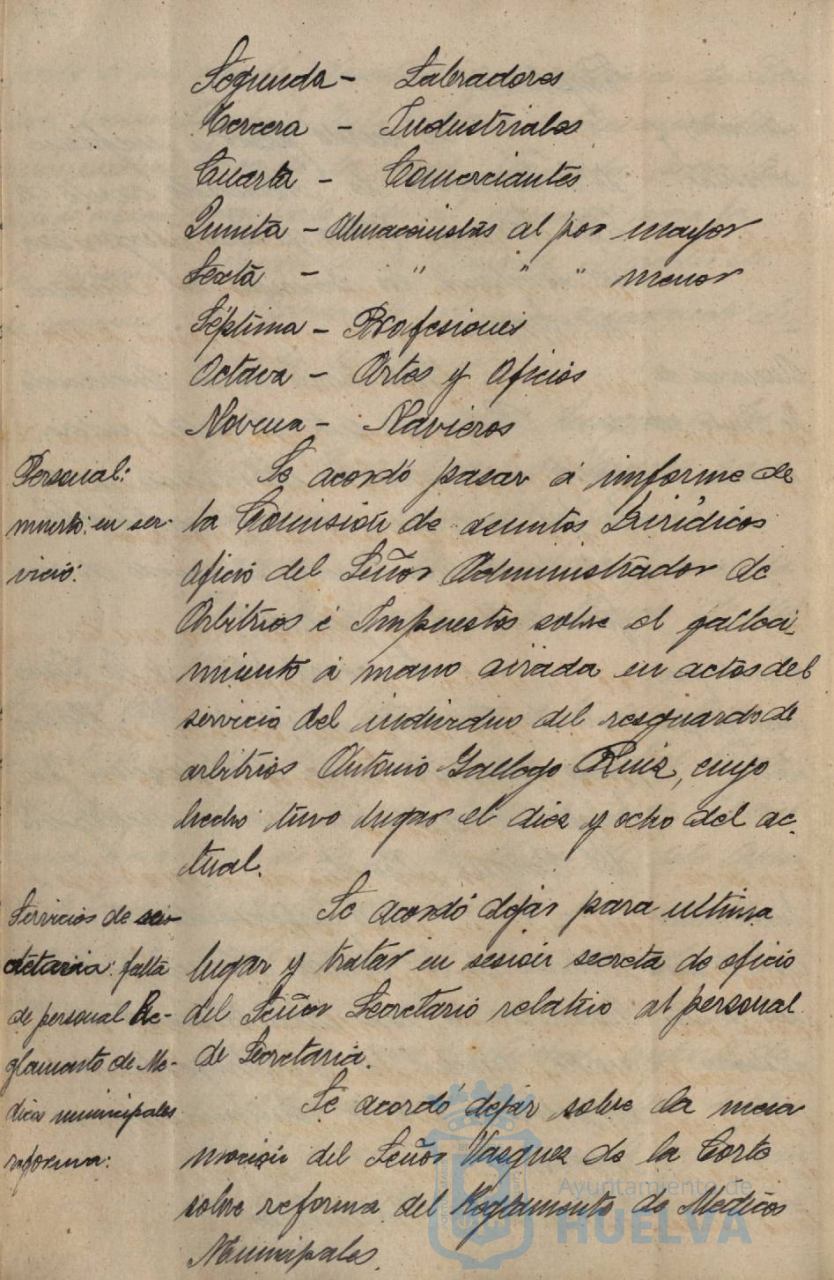 Segunda - Labradores
Tercera - Industriales
Cuarta - Comerciantes
Quinta - Almacenistas al por mayor
Sexta - " " " menor
Séptima - Profesiones
Octava - Artes y Oficios
Novena - Navieros
Personal:
muerto en ser-
vicio:
Se acordó pasar á informe de
la Comisión de asuntos Jurídicos
oficio del Señor Administrador de
Arbitrios é Impuestos sobre el falleci-
miento á mano airada en actos del
servicio del individuo del resguardo de
arbitrios Antonio Gallego Ruiz, cuyo
hecho tuvo lugar el diez y ocho del ac-
tual.
Servicios de sec-
retaria: falta
de personal Re-
glamento de Me-
dicos municipales
reforma:
Se acordó dejar para ultimo
lugar y tratar en sesión secreta de oficio
del Señor Secretario relativo al personal
de Secretaria.
Se acordó dejar sobre la mesa
moción del Señor Vazquez de la Corte
sobre reforma del Reglamento de Medicos
Municipales.
Ayuntamiento de
HUELVA